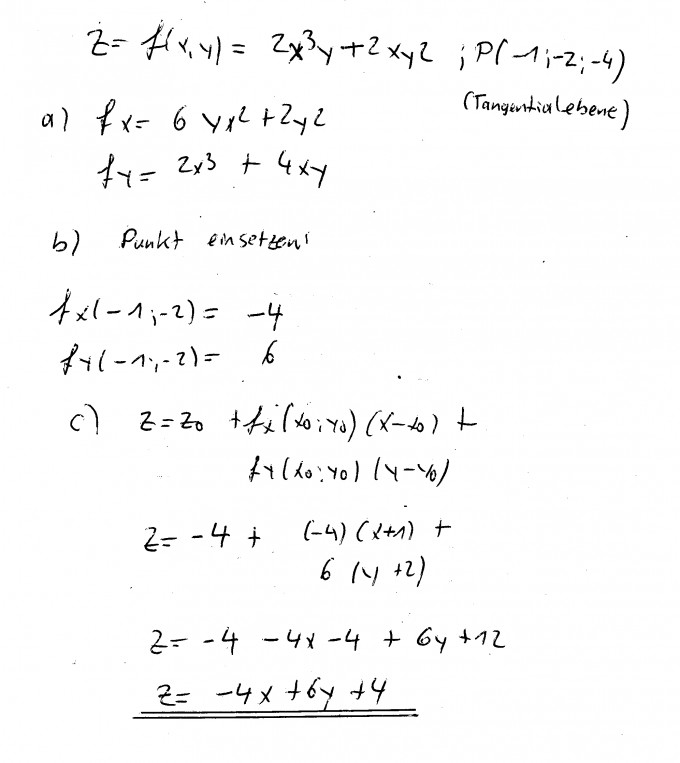 z = f(x,y) = 2x³y + 2xy2 ; P(-1;-2;-4)
(Tangentialebene)
a) fx = 6yx² + 2y2
fy = 2x³ + 4xy
b) Punkt einsetzen:
fx(-1;-2) = -4
fy(-1;-2) = 6
c) z = z₀ + fx(x₀;y₀) (x-x₀) +
fy(x₀;y₀) (y-y₀)
z = -4 + (-4)(x+1) +
6(y+2)
z = -4 - 4x - 4 + 6y + 12
z = -4x + 6y + 4